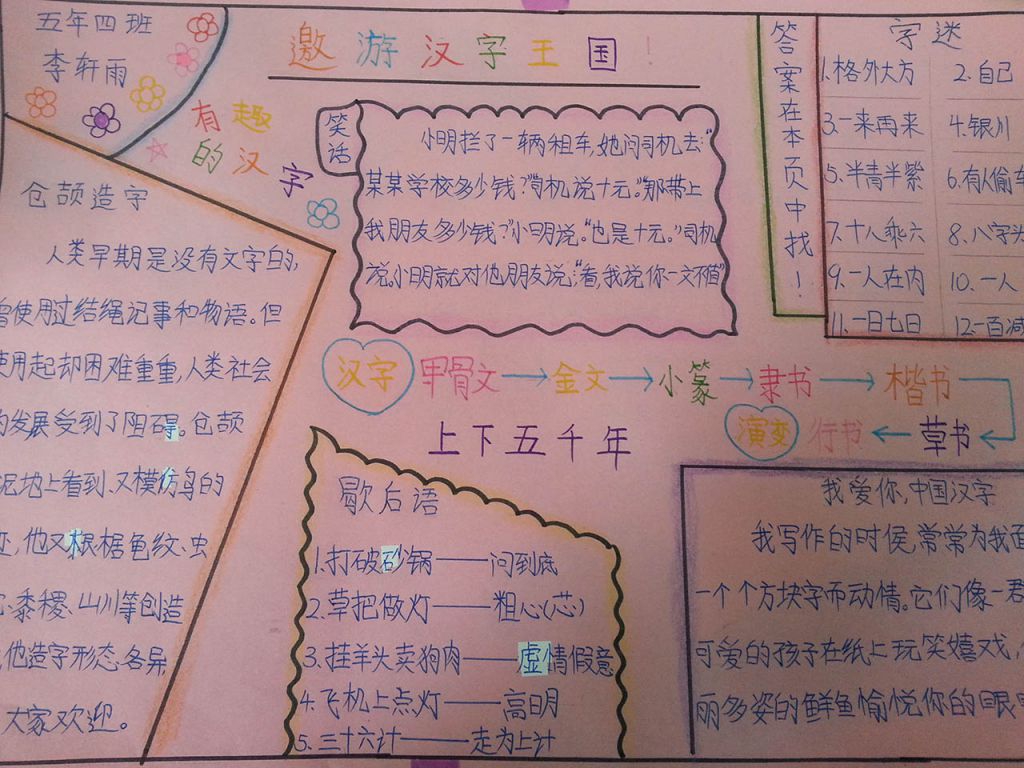 五年四班
李轩雨
遨游汉字王国!
有趣
的汉
字
仓颉造字
人类早期是没有文字的,
使用过结绳记事和物语。但
使用起却困难重重,人类社会
的发展受到了阻碍。仓颉
泥地上看到、又模仿鸟的
迹,他又根据龟纹、虫
黍稷、山川等创造
他造字形态各异
大家欢迎。
笑话
小明拦了一辆租车,她问司机去“
某某学校多少钱?”司机说十元。”那带上
我朋友多少钱?”小明说。“也是十元。”司机
说。小明就对他朋友说:“看,我说你一文不值”
答案在本页中找!
字迷
1.格外大方 2.自己
3.一来再来 4.银川
5.半青半紫 6.有人偷车
7.十人乘六 8.八字头
9.一人在内 10.一人
11.一日七日 12.一百减
汉字 甲骨文→金文→小篆→隶书→楷书
演变←行书←草书
上下五千年
歇后语
1.打破砂锅——问到底
2.草把做灯——粗心(芯)
3.挂羊头卖狗肉——虚情假意
4.飞机上点灯——高明
5.三十六计——走为上计
我爱你,中国汉字
我写作的时候,常常为我面
一个个方块字而动情。它们像一君
可爱的孩子在纸上玩笑嬉戏,
丽多姿的鲜鱼愉悦你的眼